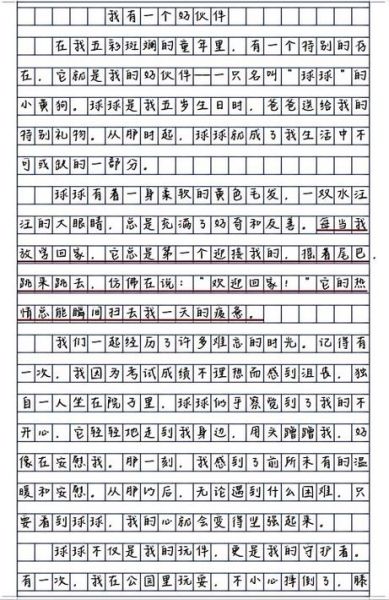 我有一个好伙伴
在我五彩斑斓的童年里，有一个特别的存
在，它就是我的好伙伴——一只名叫“球球”的
小黄狗。球球是我五岁生日时，爸爸送给我的
特别礼物。从那时起，球球就成了我生活中不
可或缺的一部分。
球球有着一身柔软的黄色毛发，一双水汪
汪的大眼睛，总是充满了好奇和友善。每当我
放学回家，它总是第一个迎接我的，摇着尾巴，
跳来跳去，仿佛在说：“欢迎回家！”它的热
情总能瞬间扫去我一天的疲惫。
我们一起经历了许多难忘的时光。记得有
一次，我因为考试成绩不理想而感到沮丧，独
自一人坐在院子里，球球似乎察觉到了我的不
开心，它轻轻地走到我身边，用头蹭蹭我，好
像在安慰我。那一刻，我感到了前所未有的温
暖和安慰。从那以后，无论遇到什么困难，只
要看到球球，我的心就会变得坚强起来。
球球不仅是我的玩伴，更是我的守护者。
有一次，我在公园里玩耍，不小心摔倒了，膝